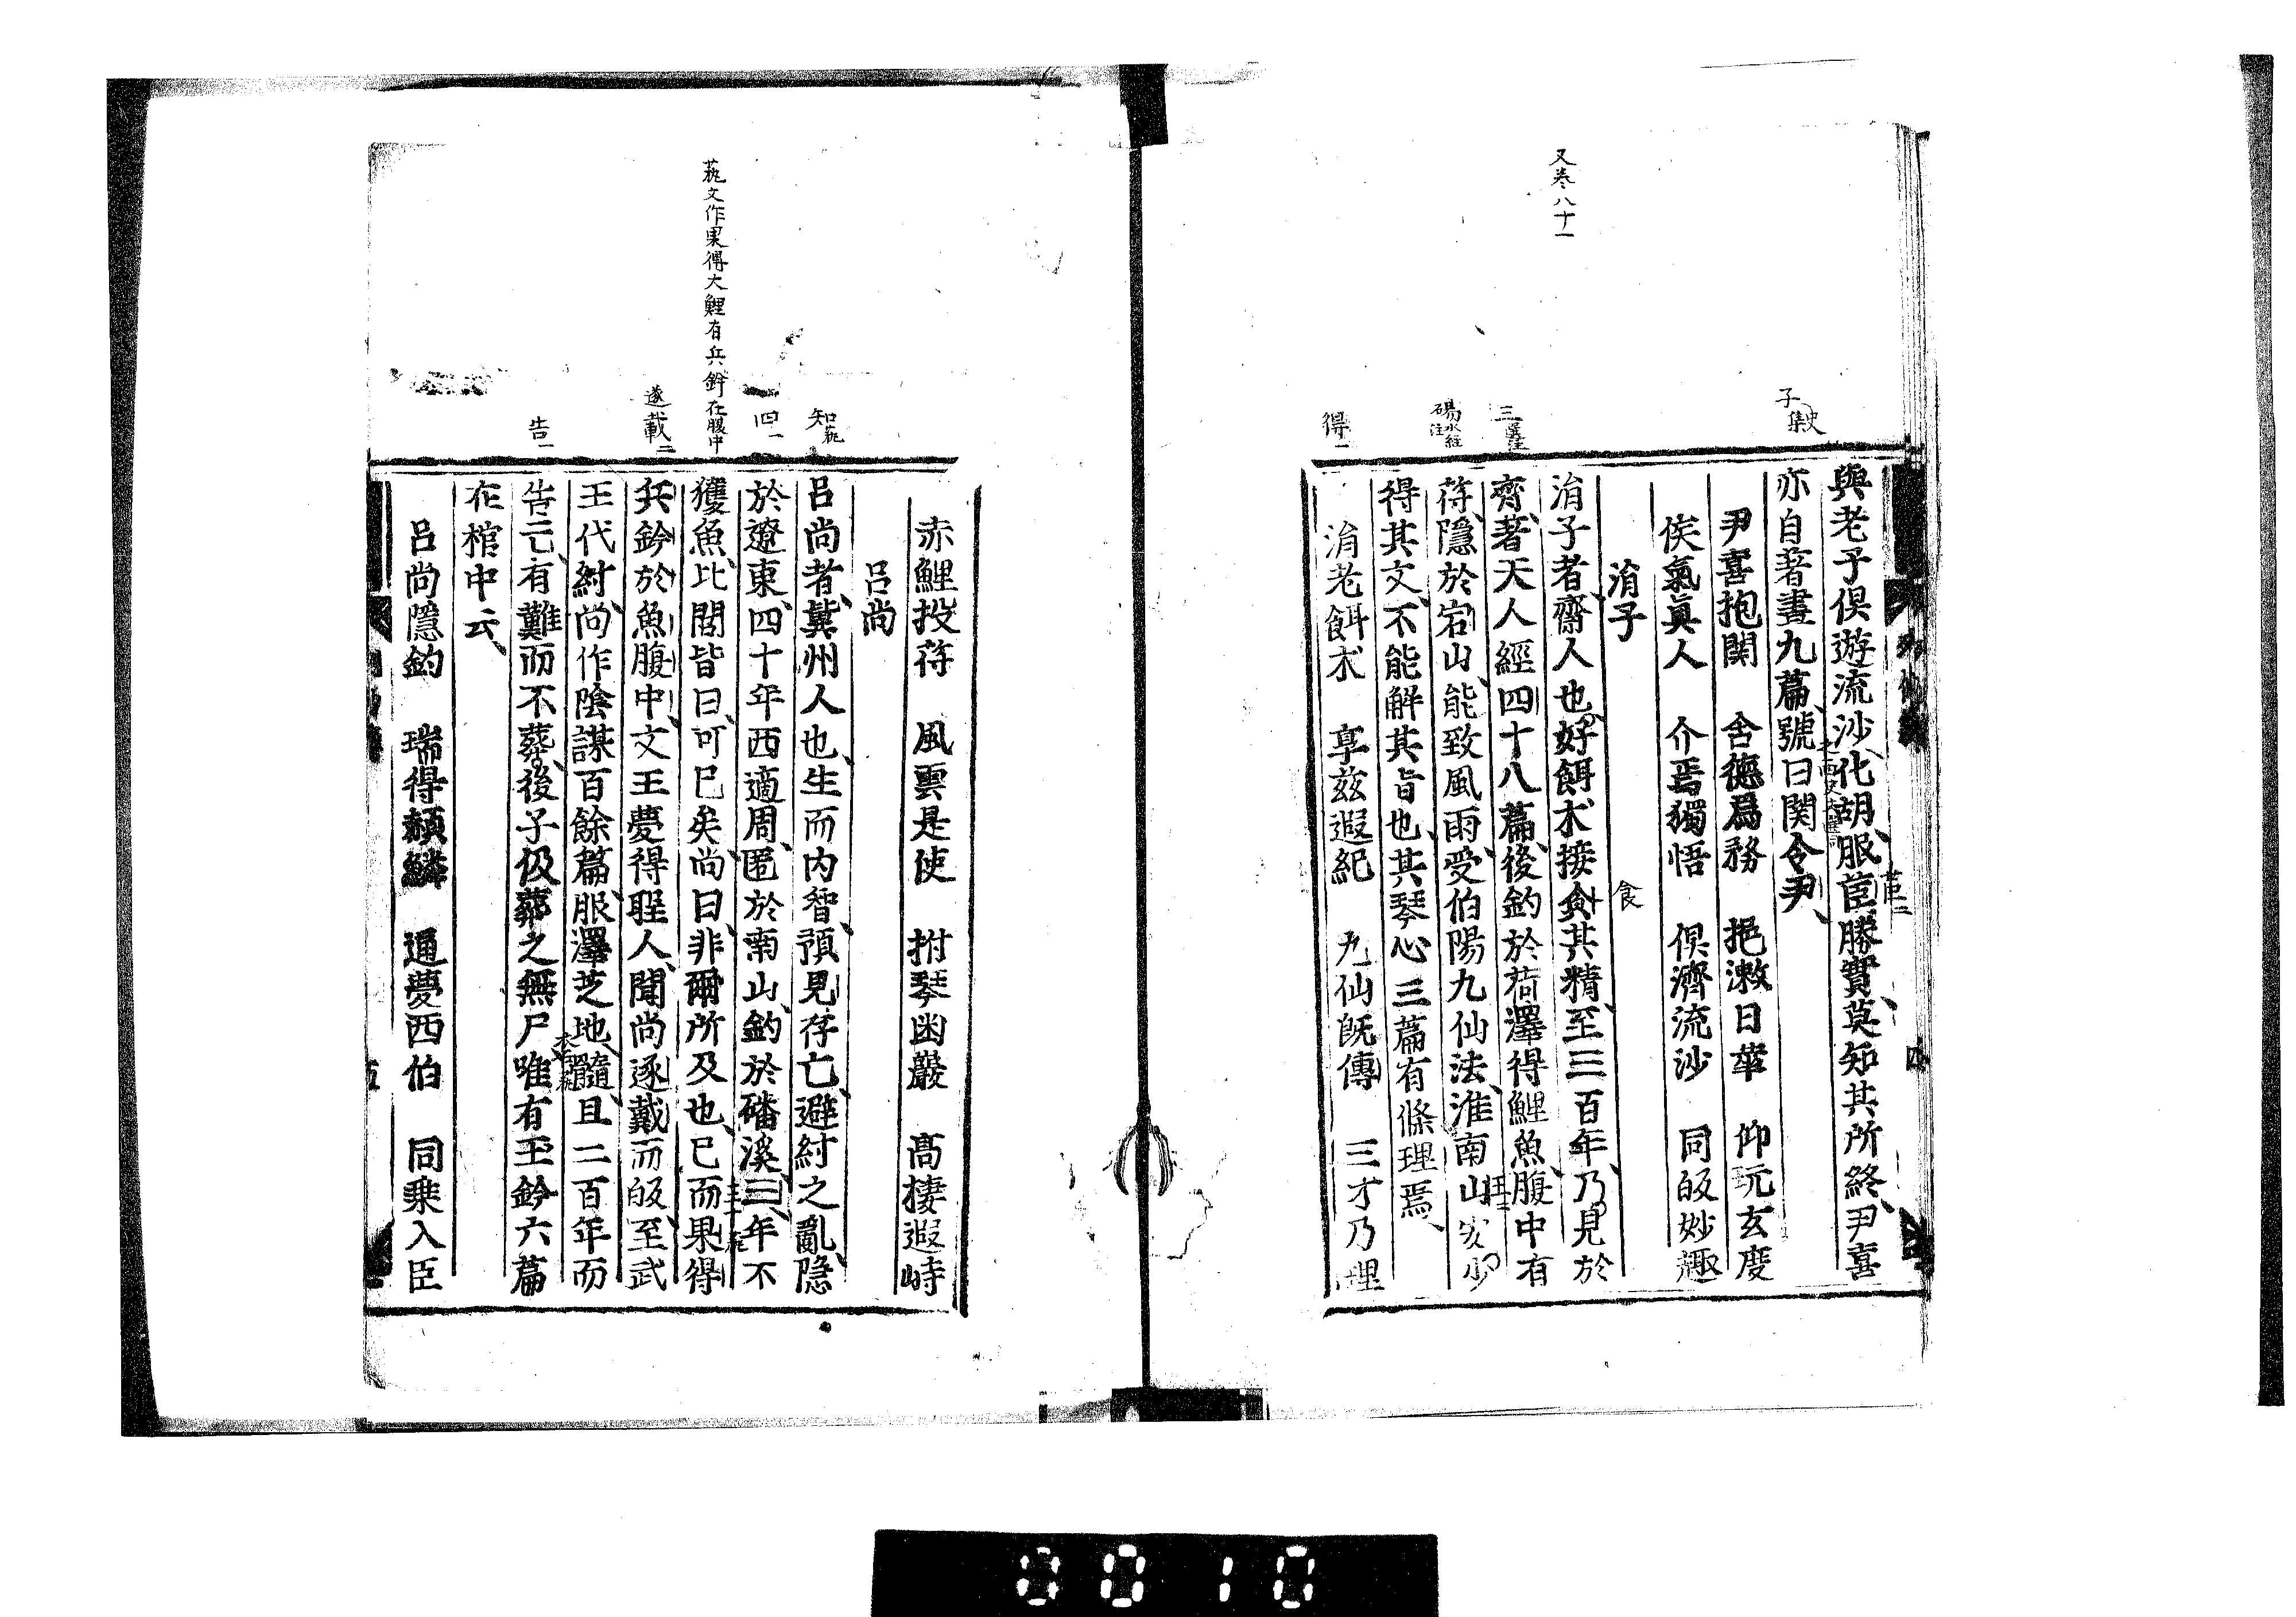 又卷八十一
子史集
三選注
碭水經注
得一
與老子俱遊流沙化胡服苣勝實莫知其所終尹喜
亦自著書九篇號曰関令尹
尹喜抱関　含德爲務　挹漱日華　仰玩玄度
候氣眞人　介焉獨悟　俱濟流沙　同皈妙趣
涓子
涓子者齋人也好餌术接食其精至三百年乃見於
齊著天人經四十八篇後釣於菏澤得鯉魚腹中有
符隱於宕山能致風雨受伯陽九仙法淮南山安少
得其文不能解其旨也其琴心三篇有條理焉
涓老餌术　享兹遐紀　九仙既傳　三才乃理
食
苣二
四
蓺文作果得大鯉有兵鈐在腹中
知蓺
四一
遂載二
告一
赤鯉投符　風雲是使　拊琴幽巖　高棲遐峙
呂尚
呂尚者冀州人也生而内智預見存亡避紂之亂隐
於遼東四十年西適周匿於南山釣於磻溪三年不
獲魚比閭皆曰可已矣尚曰非爾所及也已而果得
兵鈐於魚腹中文王夢得聖人聞尚遂戴而皈至武
王代紂尚作陰謀百餘篇服澤芝地髓且二百年而
告亡有難而不葬後子伋葬之無尸唯有玉鈐六篇
在棺中云
呂尚隱釣　瑞得赬鱗　通夢西伯　同乗入臣
五